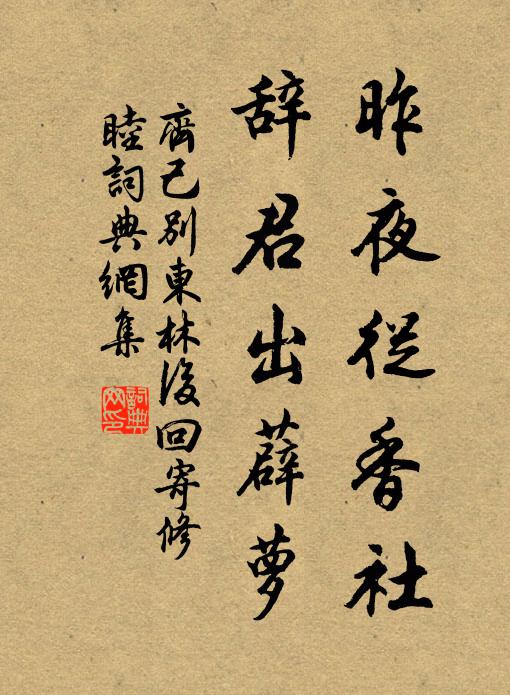 昨夜從香社
辞君出薜萝
齊己別東林後回寄修
睦詞典網集
詞典
网印